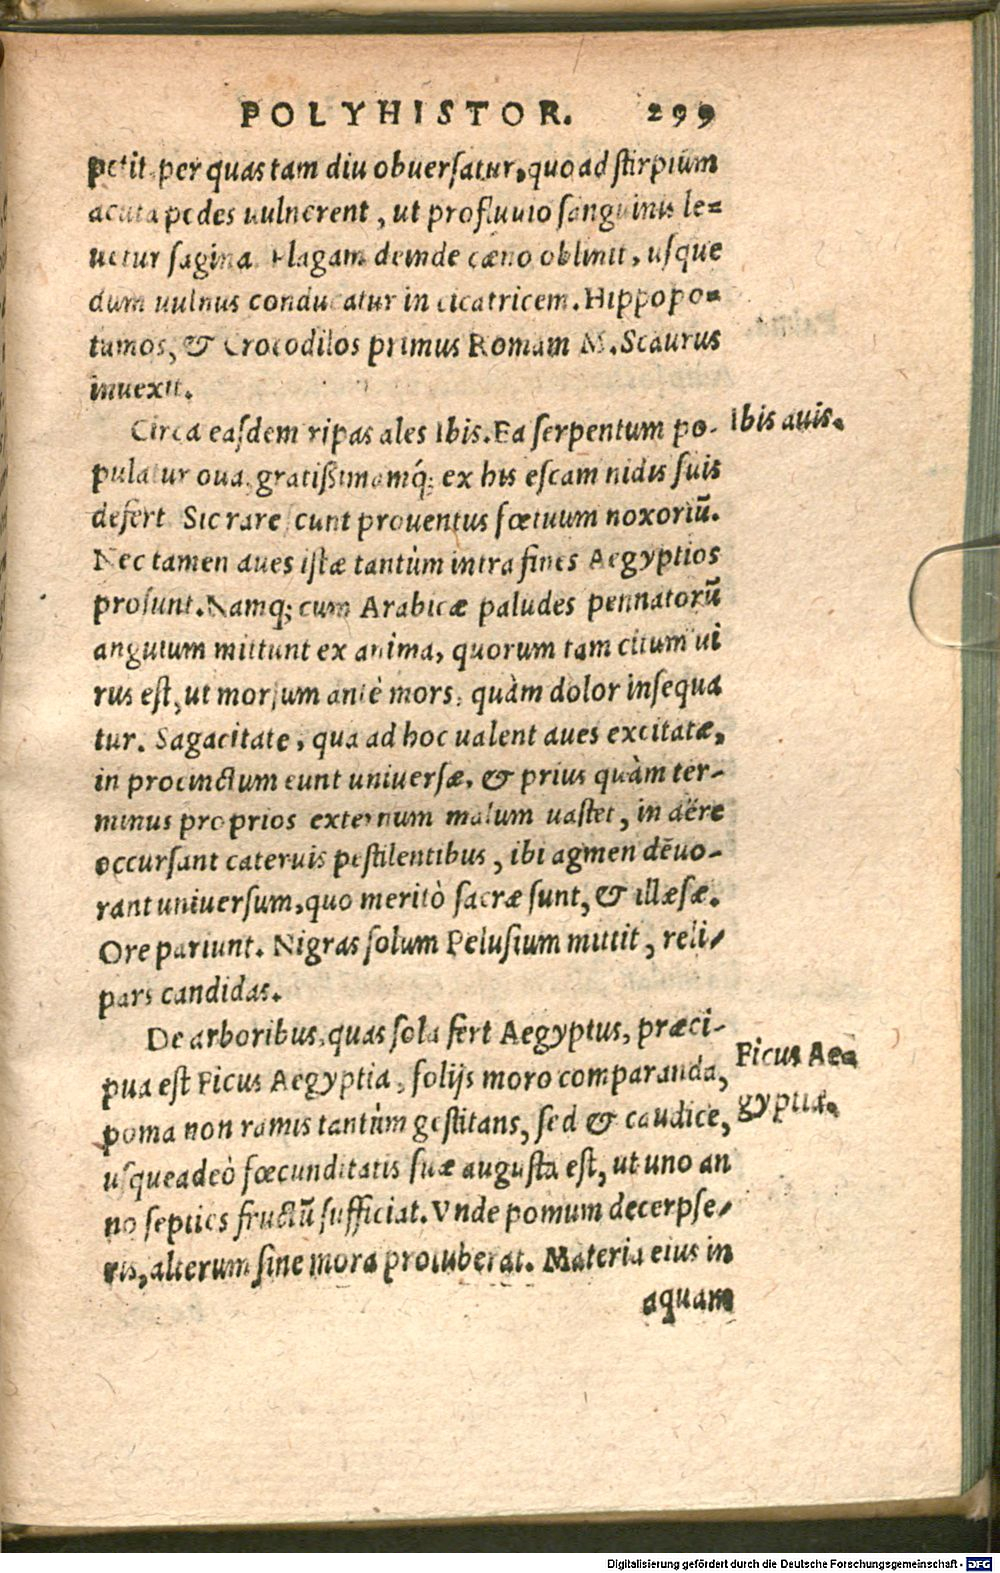 POLYHISTOR. 299
petit, per quas tam diu obuersatur, quo ad stirpium
acuta pedes uulnerent, ut profluuio sanguinis le=
uetur sagina. Plagam deinde cæno oblinit, usque
dum uulnus conducatur in cicatricem. Hippopo=
tamos, & Crocodilos primus Romam M. Scaurus
inuexit.
Circa easdem ripas ales Ibis. Ea serpentum po- Ibis auis.
pulatur oua, gratißimamq́; ex his escam nidis suis
defert. Sic rarescunt prouentus fœtuum noxoriū.
Nec tamen aues istæ tantùm intra fines Aegyptios
prosunt. Namq; cum Arabicæ paludes pennatorū
anguium mittunt ex anima, quorum tam citum ui
rus est, ut morsum antè mors, quàm dolor insequa
tur. Sagacitate, qua ad hoc ualent aues excitatæ,
in procinctum eunt uniuersæ, & prius quàm ter-
minus proprios externum malum uastet, in aëre
occursant cateruis pestilentibus, ibi agmen dēuo-
rant uniuersum, quo meritò sacræ sunt, & illæsæ.
Ore pariunt. Nigras solum Pelusium mittit, reli-
pars candidas.
De arboribus, quas sola fert Aegyptus, præci-
pua est Ficus Aegyptia, folijs moro comparanda, Ficus Ae=
poma non ramis tantùm gestitans, sed & caudice, gyptia.
usqueadeò fœcunditatis suæ augusta est, ut uno an
no septies fructū sufficiat. Vnde pomum decerpse-
ris, alterum sine mora protuberat. Materia eius in
aquam
Digitalisierung gefördert durch die Deutsche Forschungsgemeinschaft - DFG